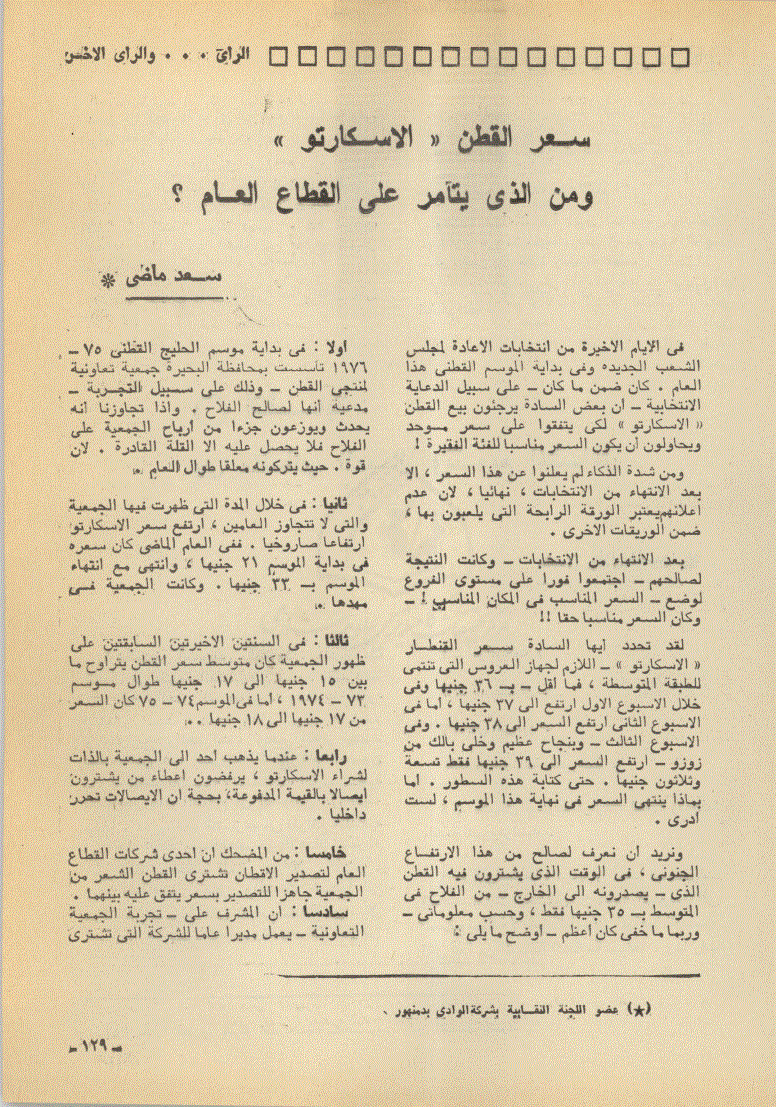 الرأى . . . والرأى الآخر
سعر القطن « الاسكارتو »
ومن الذى يتآمر على القطاع العام ؟
سعد ماضى *
فى الايام الاخيرة من انتخابات الاعادة لمجلس
الشعب الجديده وفى بداية الموسم القطنى هذا
العام . كان ضمن ما كان – على سبيل الدعاية
الانتخابية – أن بعض السادة يرجئون بيع القطن
« الاسكارتو » لكى يتفقوا على سعر موحد
ويحاولون أن يكون السعر مناسبا للفئة الفقيرة !
ومن شدة الذكاء لم يعلنوا عن هذا السعر ، الا
بعد الانتهاء من الانتخابات ، نهائيا ، لان عدم
اعلانهم يعتبر الورقة الرابحة التى يلعبون بها ،
ضمن الوريقات الاخرى .
بعد الانتهاء من الانتخابات – وكانت النتيجة
لصالحهم – اجتمعوا فورا على مستوى الفروع
لوضع – السعر المناسب فى المكان المناسب ! –
وكان السعر مناسبا حقا !!
لقد تحدد أيها السادة سعر القنطار
« الاسكارتو » – اللازم لجهاز العروس التى تنتمى
للطبقة المتوسطة ، فما أقل – بـ ٣٦ جنيها وفى
خلال الاسبوع الاول ارتفع الى ٣٧ جنيها ، أما فى
الاسبوع الثانى ارتفع السعر الى ٣٨ جنيها . وفى
الاسبوع الثالث – وبنجاح عظيم وخلى بالك من
زوزو – ارتفع السعر الى ٣٩ جنيها فقط تسعة
وثلاثون جنيها . حتى كتابة هذه السطور . أما
بماذا ينتهى السعر فى نهاية هذا الموسم ، لست
أدرى .
ونريد أن نعرف لصالح من هذا الارتفاع
الجنونى ، فى الوقت الذى يشترون فيه القطن
الذى – يصدرونه الى الخارج – من الفلاح فى
المتوسط بـ ٣٥ جنيها فقط ، وحسب معلوماتى –
وربما ما خفى كان أعظم – أوضح ما يلى :
اولا : فى بداية موسم الحليج القطنى ٧٥ –
١٩٧٦ تأسست بمحافظة البحيرة جمعية تعاونية
لمنتجى القطن – وذلك على سبيل التجربة –
مدعية أنها لصالح الفلاح . واذا تجاوزنا أنه
يحدث ويوزعون جزءا من أرباح الجمعية على
الفلاح فلا يحصل عليه الا القلة القادرة . لان
قوة . حيث يتركونه معلقا طوال العام .
ثانيا : فى خلال المدة التى ظهرت فيها الجمعية
والتى لا تتجاوز العامين ، ارتفع سعر الاسكارتو
ارتفاعا صاروخيا . ففى العام الماضى كان سعره
فى بداية الموسم ٢١ جنيها ، وانتهى مع انتهاء
الموسم بـ ٣٣ جنيها . وكانت الجمعية فى
مهدها .
ثالثا : فى السنتين الاخيرتين السابقتين على
ظهور الجمعية كان متوسط سعر القطن يتراوح ما
بين ١٥ جنيها الى ١٧ جنيها طوال موسم
٧٣ – ١٩٧٤ ، أما فى الموسم ٧٤ – ٧٥ كان السعر
من ١٧ جنيها الى ١٨ جنيها . .
رابعا : عندما يذهب أحد الى الجمعية بالذات
لشراء الاسكارتو ، يرفضون اعطاء من يشترون
ايصالا بالقيمة المدفوعة ، بحجة ان الايصالات تحرر
داخليا .
خامسا : من المضحك ان احدى شركات القطاع
العام لتصدير الاقطان تشترى القطن الشعر من
الجمعية جاهزا للتصدير بسعر يتفق عليه بينهما .
سادسا : أن المشرف على – تجربة الجمعية
التعاونية – يعمل مديرا عاما للشركة التى تشترى
(★) عضو اللجنة النقابية بشركة الوادى بدمنهور .
– ١٢٩ –